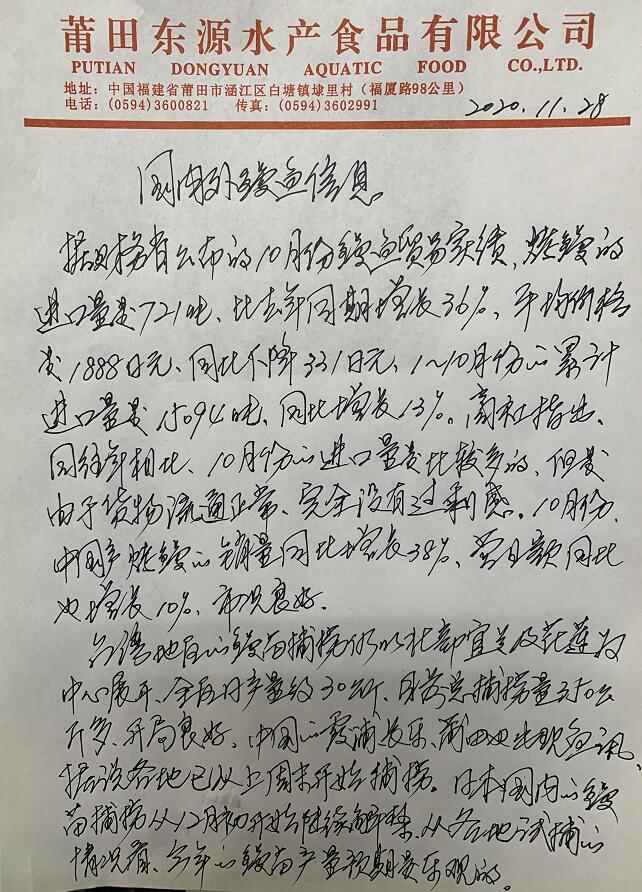 莆田东源水产食品有限公司
PUTIAN DONGYUAN AQUATIC FOOD CO.,LTD.
地址：中国福建省莆田市涵江区白塘镇埭里村（福厦路98公里）
电话：(0594)3600821 传真：(0594)3602991
2020.11.28
国内外鳗鱼信息。
据财务省公布的10月份鳗鱼贸易实绩、烤鳗的
进口量是721吨、比去年同期增长36%、平均价格
是1888日元、同比下降331日元、1~10月份的累计
进口量是15094吨、同比增长13%。商社指出、
同往年相比、10月份的进口量是比较多的、但是
由于货物流通正常、完全没有过剩感。10月份、
中国产烤鳗的销量同比增长38%、营业额同比
也增长10%、市况良好。
台湾地区的鳗苗捕捞仍以北部宜兰及花莲为
中心展开、全台日产量约30公斤、目前总捕捞量350公
斤多、开局良好、中国的霞浦长乐、莆田也出现鱼汛、
据说各地已从上周末开始捕捞。日本国内的鳗
苗捕捞从12月初开始陆续解禁、从各地试捕的
情况看、今年的鳗苗产量预期是乐观的。